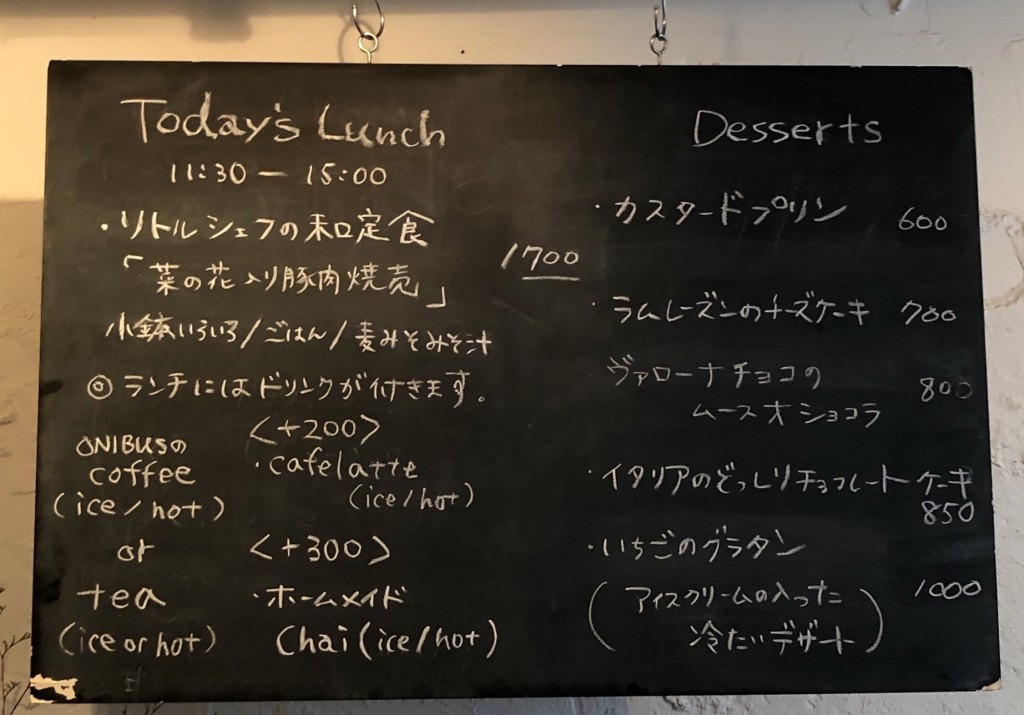 Today's Lunch
11:30 — 15:00
・リトルシェフの和定食
「菜の花入り豚肉焼売」
1700
小鉢いろいろ/ごはん/麦みそみそ汁
◎ランチにはドリンクが付きます。
ONIBUSの
coffee
(ice/hot)
or
tea
(ice or hot)
<+200>
・cafelatte
(ice/hot)
<+300>
・ホームメイド
Chai(ice/hot)
Desserts
・カスタードプリン 600
・ラムレーズンのチーズケーキ 700
ヴァローナチョコの 800
ムースオショコラ
・イタリアのどっしりチョコレートケーキ
850
・いちごのグラタン
(アイスクリームの入った 1000
冷たいデザート)